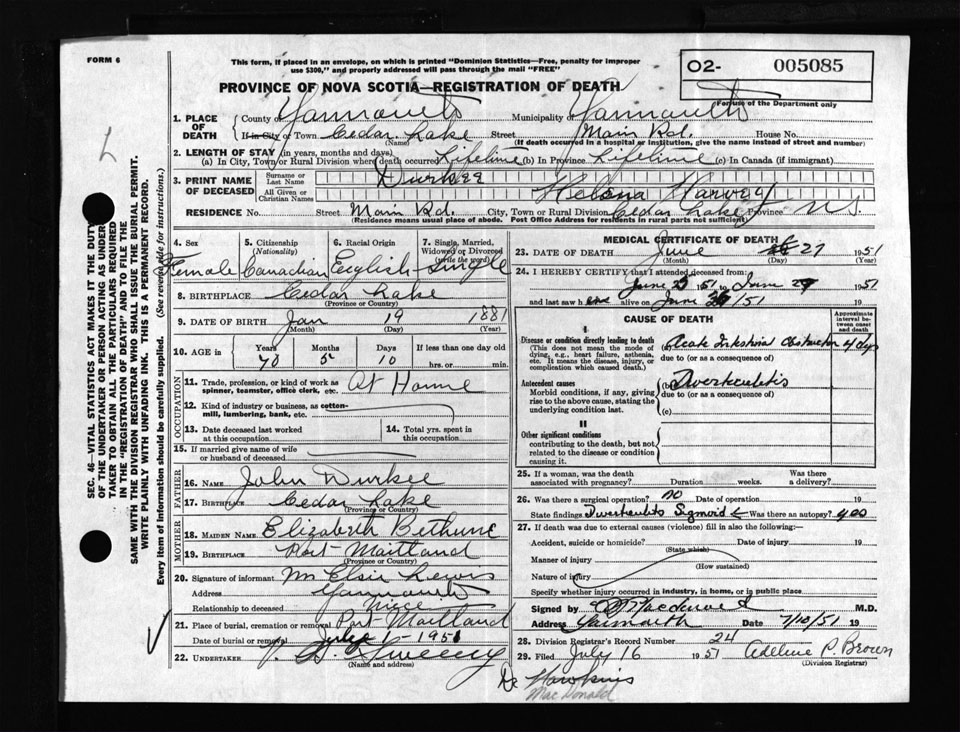 FORM 6
This form, if placed in an envelope, on which is printed "Dominion Statistics—Free, penalty for improper
use $300," and properly addressed will pass through the mail "FREE"
O2- 005085
For use of the Department only
PROVINCE OF NOVA SCOTIA—REGISTRATION OF DEATH
1. PLACE OF DEATH
County of Yarmouth Municipality of Yarmouth
If in City or Town Cedar Lake Street Main Rd. House No.
(Name) (If death occurred in a hospital or institution, give the name instead of street and number)
2. LENGTH OF STAY (in years, months and days)
(a) In City, Town or Rural Division where death occurred Lifetime (b) In Province Lifetime (c) In Canada (if immigrant)
3. PRINT NAME OF DECEASED
Surname or Last Name Durkee
All Given or Christian Names Helena Harvey
RESIDENCE No. Street Main Rd. City, Town or Rural Division Cedar Lake Province N.S.
(Residence means usual place of abode. Post Office Address for residents in rural parts not sufficient)
4. Sex Female
5. Citizenship (Nationality) Canadian
6. Racial Origin English
7. Single, Married, Widowed or Divorced (write the word) Single
8. BIRTHPLACE Cedar Lake
(Province or Country)
9. DATE OF BIRTH Jan 19 1881
(Month) (Day) (Year)
10. AGE in Years Months Days If less than one day old
70 5 10 hrs. or min.
OCCUPATION
11. Trade, profession, or kind of work as spinner, teamster, office clerk, etc. At Home
12. Kind of industry or business, as cotton-mill, lumbering, bank, etc.
13. Date deceased last worked at this occupation
14. Total yrs. spent in this occupation
15. If married give name of wife or husband of deceased
FATHER
16. Name John Durkee
17. Birthplace Cedar Lake
(Province or Country)
MOTHER
18. MAIDEN NAME Elizabeth Bethune
19. BIRTHPLACE Port Maitland
(Province or Country)
20. Signature of informant Elsie Lewis
Address Yarmouth
Relationship to deceased Niece
21. Place of burial, cremation or removal Port Maitland
Date of burial or removal July 1 1951
22. UNDERTAKER Sweeny
(Name and address)
MEDICAL CERTIFICATE OF DEATH
23. DATE OF DEATH June 27 1951
(Month) (Day) (Year)
24. I HEREBY CERTIFY that I attended deceased from:
June /51 to June 1951
and last saw h alive on June /51 19
CAUSE OF DEATH
Approximate interval between onset and death
I
Disease or condition directly leading to death
(This does not mean the mode of dying, e.g., heart failure, asthenia, etc. It means the disease, injury, or complication which caused death.)
(a) Acute Intestinal Obstruction 4 days
due to (or as a consequence of)
Antecedent causes
Morbid conditions, if any, giving rise to the above cause, stating the underlying condition last.
(b) Diverticulitis
due to (or as a consequence of)
(c)
II
Other significant conditions
contributing to the death, but not related to the disease or condition causing it.
25. If a woman, was the death associated with pregnancy? Duration weeks. Was there a delivery?
26. Was there a surgical operation? no Date of operation 19
State findings Diverticulitis Sigmoid Was there an autopsy? yes
27. If death was due to external causes (violence) fill in also the following:—
Accident, suicide or homicide? Date of injury 19
(State which)
Manner of injury
(How sustained)
Nature of injury
Specify whether injury occurred in industry, in home, or in public place
Signed by M.D.
Address Yarmouth Date 7/10/51 19
28. Division Registrar's Record Number 24
29. Filed July 16 1951 Adeline P. Brown
(Division Registrar)
Dr Hawkins
MacDonald
SEC. 46—VITAL STATISTICS ACT MAKES IT THE DUTY
OF THE UNDERTAKER OR PERSON ACTING AS UNDER
TAKER TO OBTAIN ALL THE PARTICULARS REQUIRED
IN THE "REGISTRATION OF DEATH" AND TO FILE THE
SAME WITH THE DIVISION REGISTRAR WHO SHALL ISSUE THE BURIAL PERMIT.
WRITE PLAINLY WITH UNFADING INK. THIS IS A PERMANENT RECORD.
Every item of information should be carefully supplied. (See reverse side for instructions.)